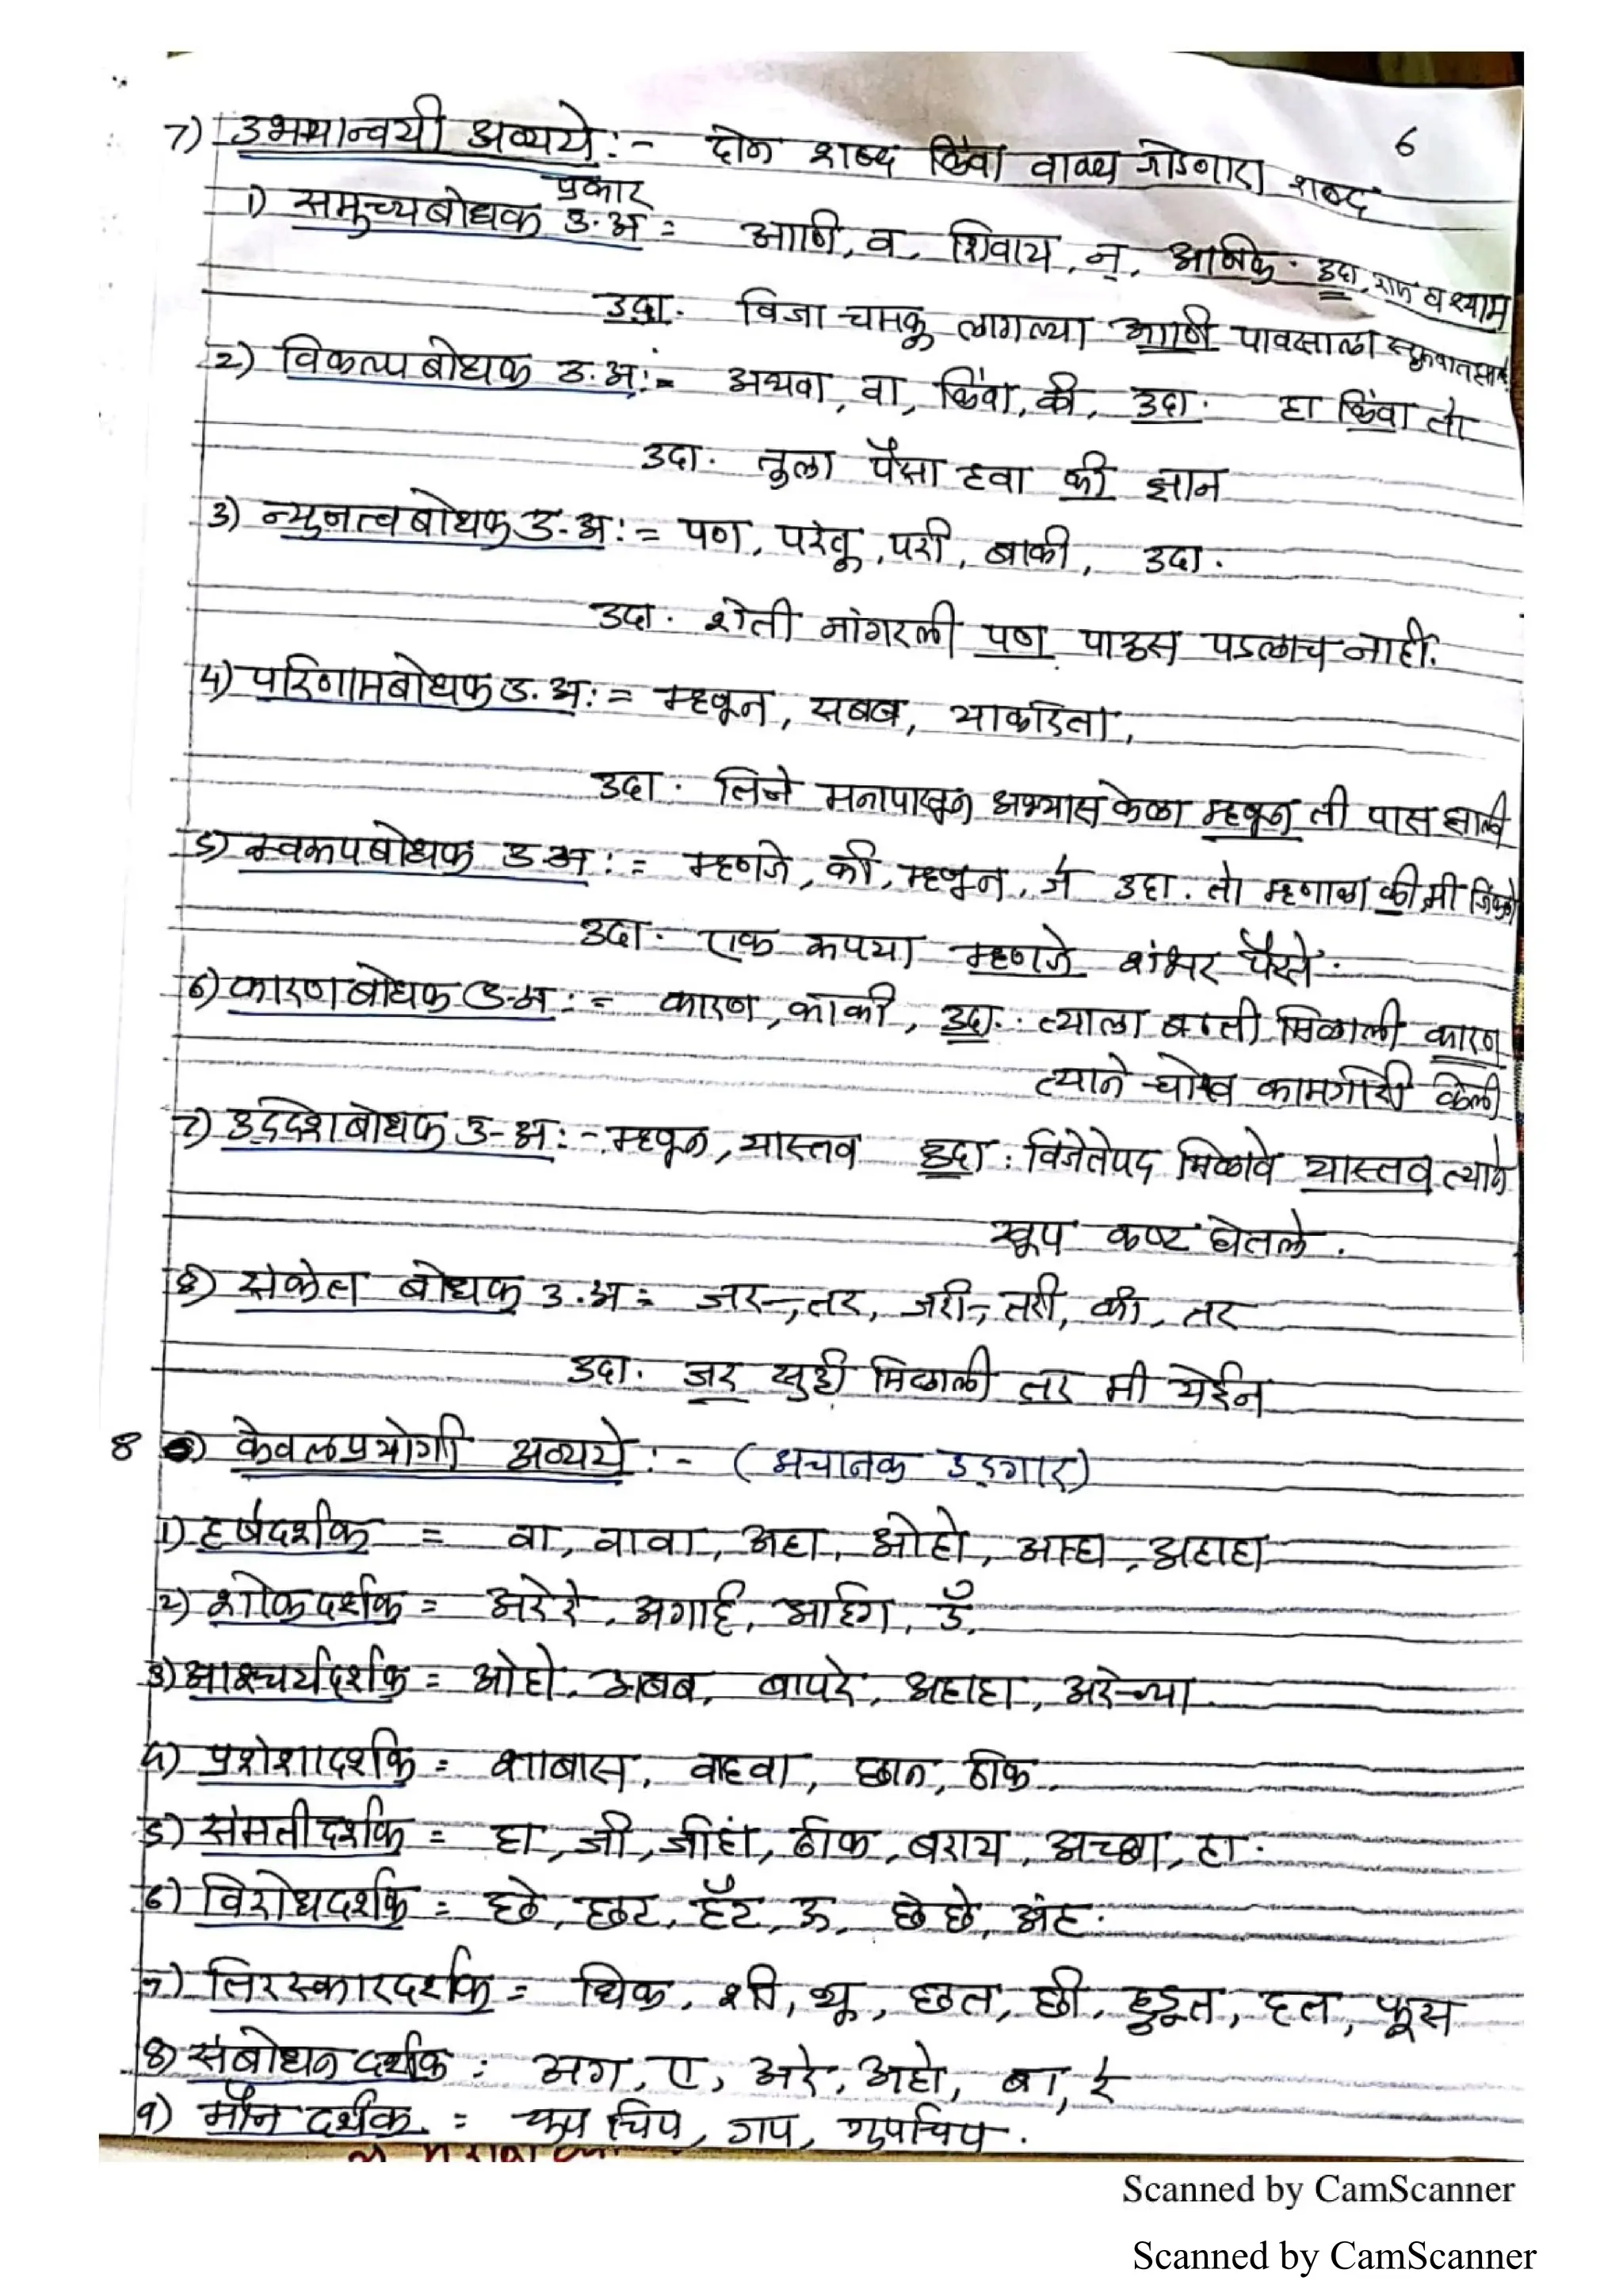 6
7) उभयान्वयी अव्यये :- दोन शब्द किंवा वाक्य जोडणारा शब्द
प्रकार
1) समुच्यबोधक उ.अ = आणि, व, शिवाय, न्, आणिक. उदा. राम व श्याम
उदा. विजा चमकू लागल्या आणि पावसाला सुरुवात झाली.
2) विकल्पबोधक उ.अ := अथवा, वा, किंवा, की, उदा. हा किंवा तो
उदा. तुला पैसा हवा की ज्ञान
3) न्युनत्वबोधक उ-अ := पण, परंतू, परी, बाकी, उदा.
उदा. शेती नांगरली पण पाऊस पडलाच नाही.
4) परिणामबोधक उ.अ := म्हणून, सबब, याकरिता,
उदा. तिने मनापासून अभ्यास केला म्हणून ती पास झाली
5) स्वरूपबोधक उ.अ := म्हणजे, की, म्हणून, जे उदा. तो म्हणाला की, मी जिंकलो
उदा. एक रुपया म्हणजे शंभर पैसे.
6) कारणबोधक उ-अ := कारण, काकी, उदा. त्याला बढती मिळाली कारण
त्याने चोख कामगिरी केली
7) उद्देशबोधक उ-अ :- म्हणून, यास्तव उदा : विजेतेपद मिळावे यास्तव त्याने
खूप कष्ट घेतले.
8) संकेत बोधक उ.अ = जर-, तर, जरी-, तरी, की, तर
उदा. जर सुट्टी मिळाली तर मी येईन
8 केवलप्रयोगी अव्यये :- (अचानक उद्गार)
1) हर्षदर्शक = वा, वावा, अहा, ओहो, आहा, अहाहा
2) शोकदर्शक = अरेरे, अगाई, आईग, ऊँ,
3) आश्चर्यदर्शक = ओहो, अबब, बापरे, अहाहा, अरेच्या
4) प्रशंशादर्शक = शाबास, वाहवा, छान, ठीक,
5) संमतीदर्शक = हा, जी, जीहां, ठीक, बराय, अच्छा, हा.
6) विरोधदर्शक = छे, छट, हॅट, ऊं, छेछे, अंह.
7) तिरस्कारदर्शक = धिक, शी, थू, छत, छी, हुडूत, हत, फूस
8) संबोधन दर्शक : अग, ए, अरे, अहो, बा, रे
9) मौन दर्शक = चूप चिप, गप, गुपचिप.
Scanned by CamScanner
Scanned by CamScanner